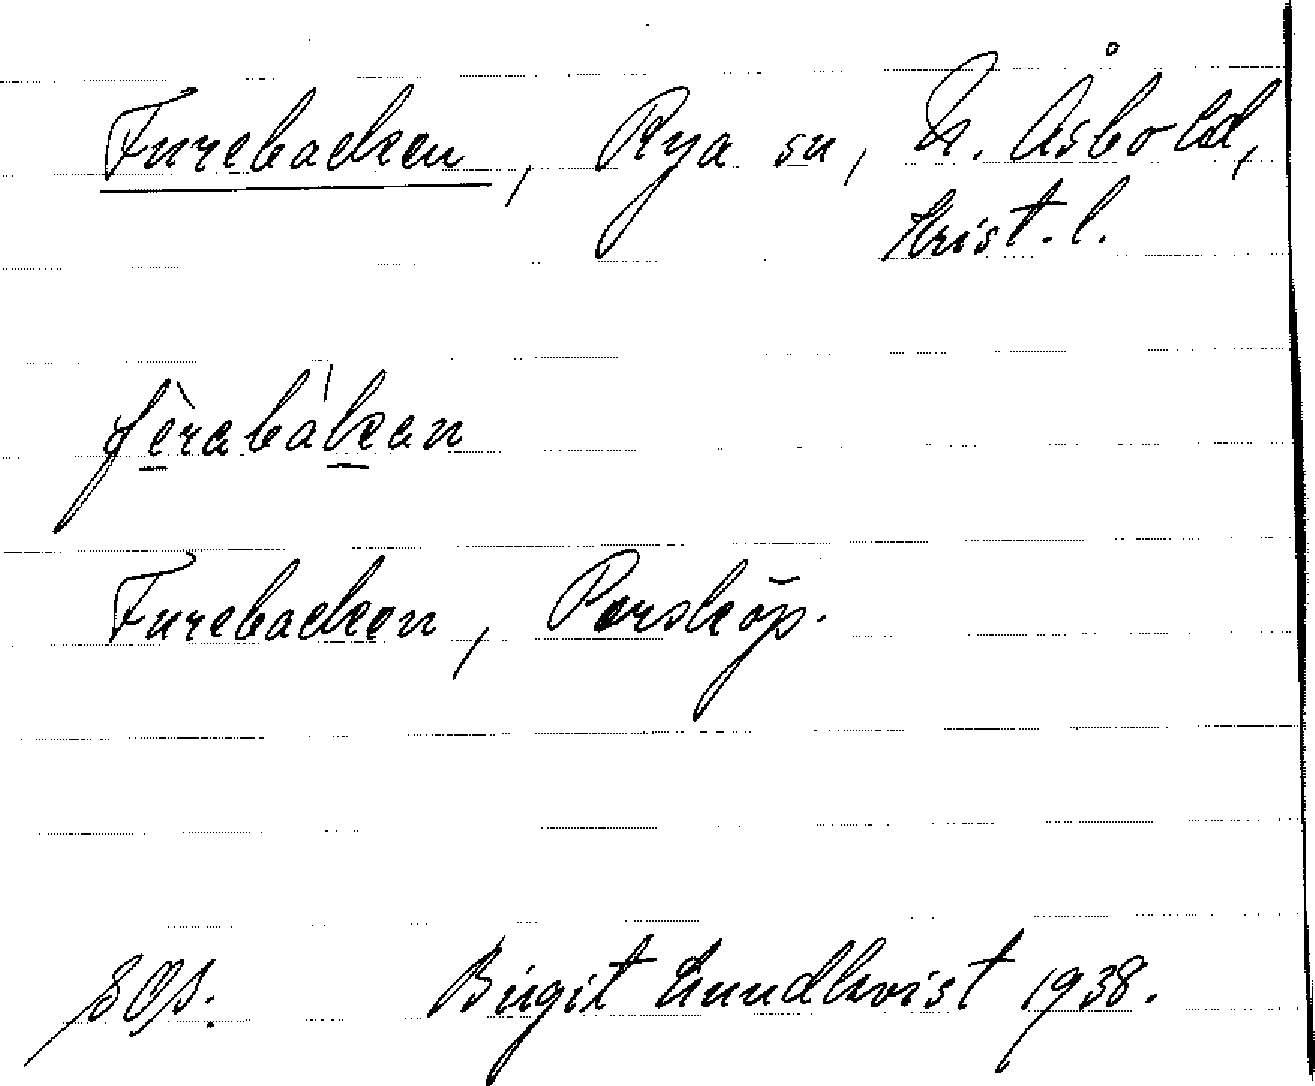 Furebacken, Rya sn, N. Åsbo hd,
Krist. l.
fèrabàkan
Furebacken, Perstorp.
Birgit Lundkvist 1938.